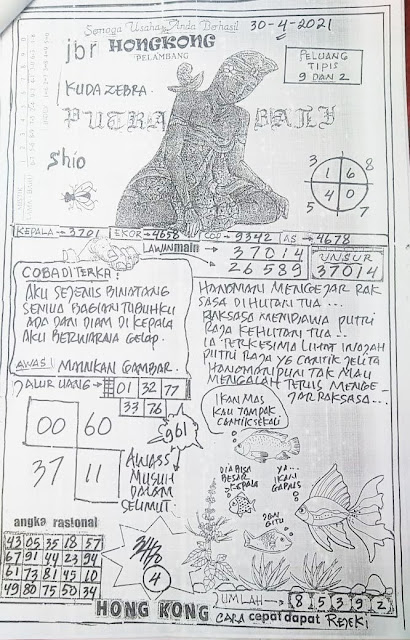 Semoga Usaha Anda Berhasil
30-4-2021
jbr HONGKONG
PELAMBANG
PELUANG
TIPIS
9 DAN 2
KUDA ZEBRA.
PUTRA BALI
Shio
3 1 6 8
5 4 0 7
KEPALA → 3701 EKOR → 4658 COP → 9342 AS → 4678
LAWAN main → 37014
26589
UNSUR
37014
COBA DI TERKA:
AKU SEJENIS BINATANG
SEMUA BAGIAN TUBUHKU
ADA DAN DIAM DI KEPALA
AKU BERWARNA GELAP.
AWAS! MAINKAN GAMBAR.
HANOMAN MENGEJAR RAK
SASA DI HUTAN TUA...
RAKSASA MEMBAWA PUTRI
RAJA KEHUTAN TUA...
IA TERKESIMA LIHAT WAJAH
PUTRI RAJA YG CANTIK JELITA
HANOMAN PUN TAK MAU
MENGALAH TERUS MENGE-
JAR RAKSASA...
JALUR UANG → 01 32 77
33 76
00 60
37 11
961
AWASS
MUSUH
DALAM
SELIMUT.
IKAN MAS
KAU TAMPAK
CANTIK SEKALI
DIA BISA
BESAR
KEPALA
YA...
IKAN
GAPAIS
JGN
GITU
angka rasional
43 05 35 18 57
67 91 44 23 94
61 73 81 45 10
49 80 75 50 34
4
HONG KONG
JUMLAH → 8 5 3 9 2
CARA cepat dapat REJEKI